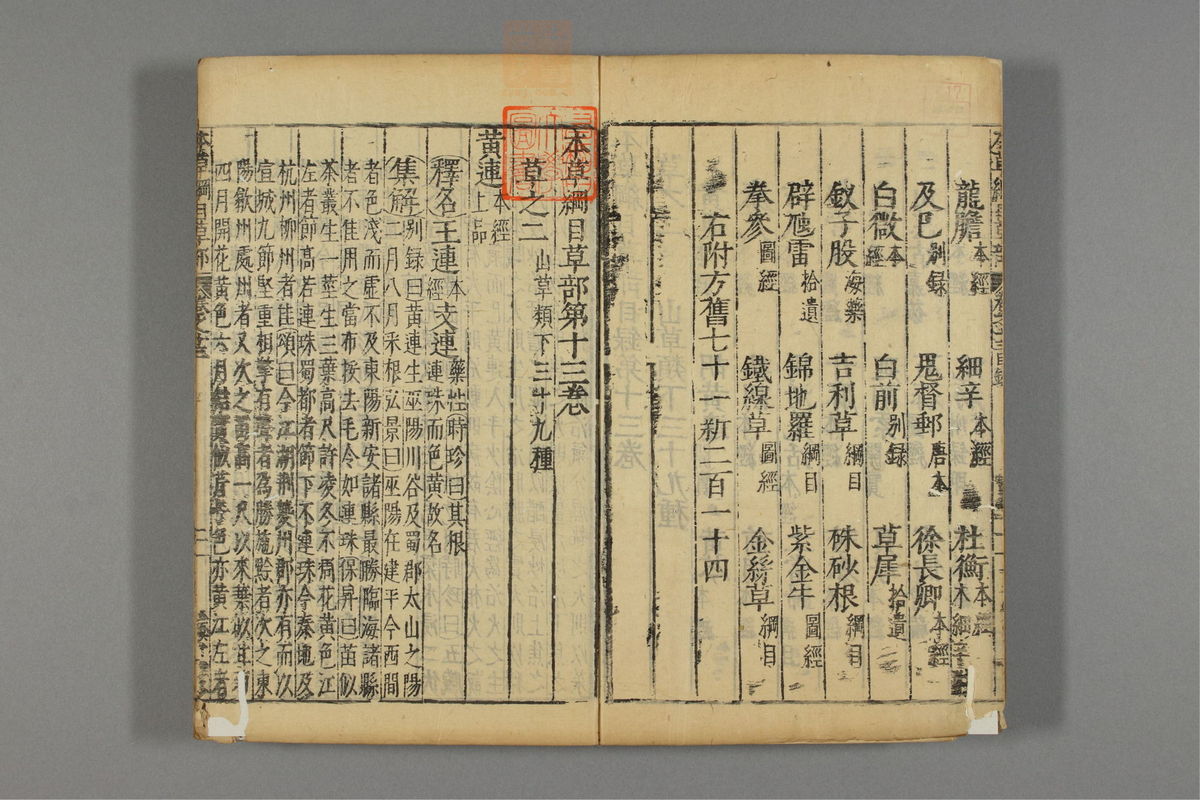 龍膽本經　細辛本經　杜衡本經木細辛
及巳別録　鬼督郵唐本　徐長卿本經
白微本經　白前别録　草犀拾遺
釵子股海藥　吉利草綱目　硃砂根綱目
辟虺雷拾遺　錦地羅綱目　紫金牛圖經
拳參圖經　鐵線草圖經　金絲草綱目
右附方舊七十一新二百一十四
本草綱目草部第十三卷
草之二　山草類下三十九種
黄連本經上品
釋名王連本經支連藥性時珍曰其根連珠而色黄故名
集解别録曰黄連生巫陽川谷及蜀郡太山之陽
二月八月采根弘景曰巫陽在建平今西間
者色淺而虚不及東陽新安諸縣最勝臨海諸縣
者不佳用之當布裹挼去毛令如連珠保昇曰苗似
茶叢生一莖生三葉高尺許凌冬不凋花黄色江
左者節高若連珠蜀都者節下不連珠今秦地及
杭州柳州者佳頌曰今江湖荆夔州郡亦有而以
宣城九節堅重相擊有聲者爲勝施黔者次之東
陽歙州處州者又次之苗高一尺以來葉似甘菊
四月開花黄色六月結實似芹子色亦黄江左者